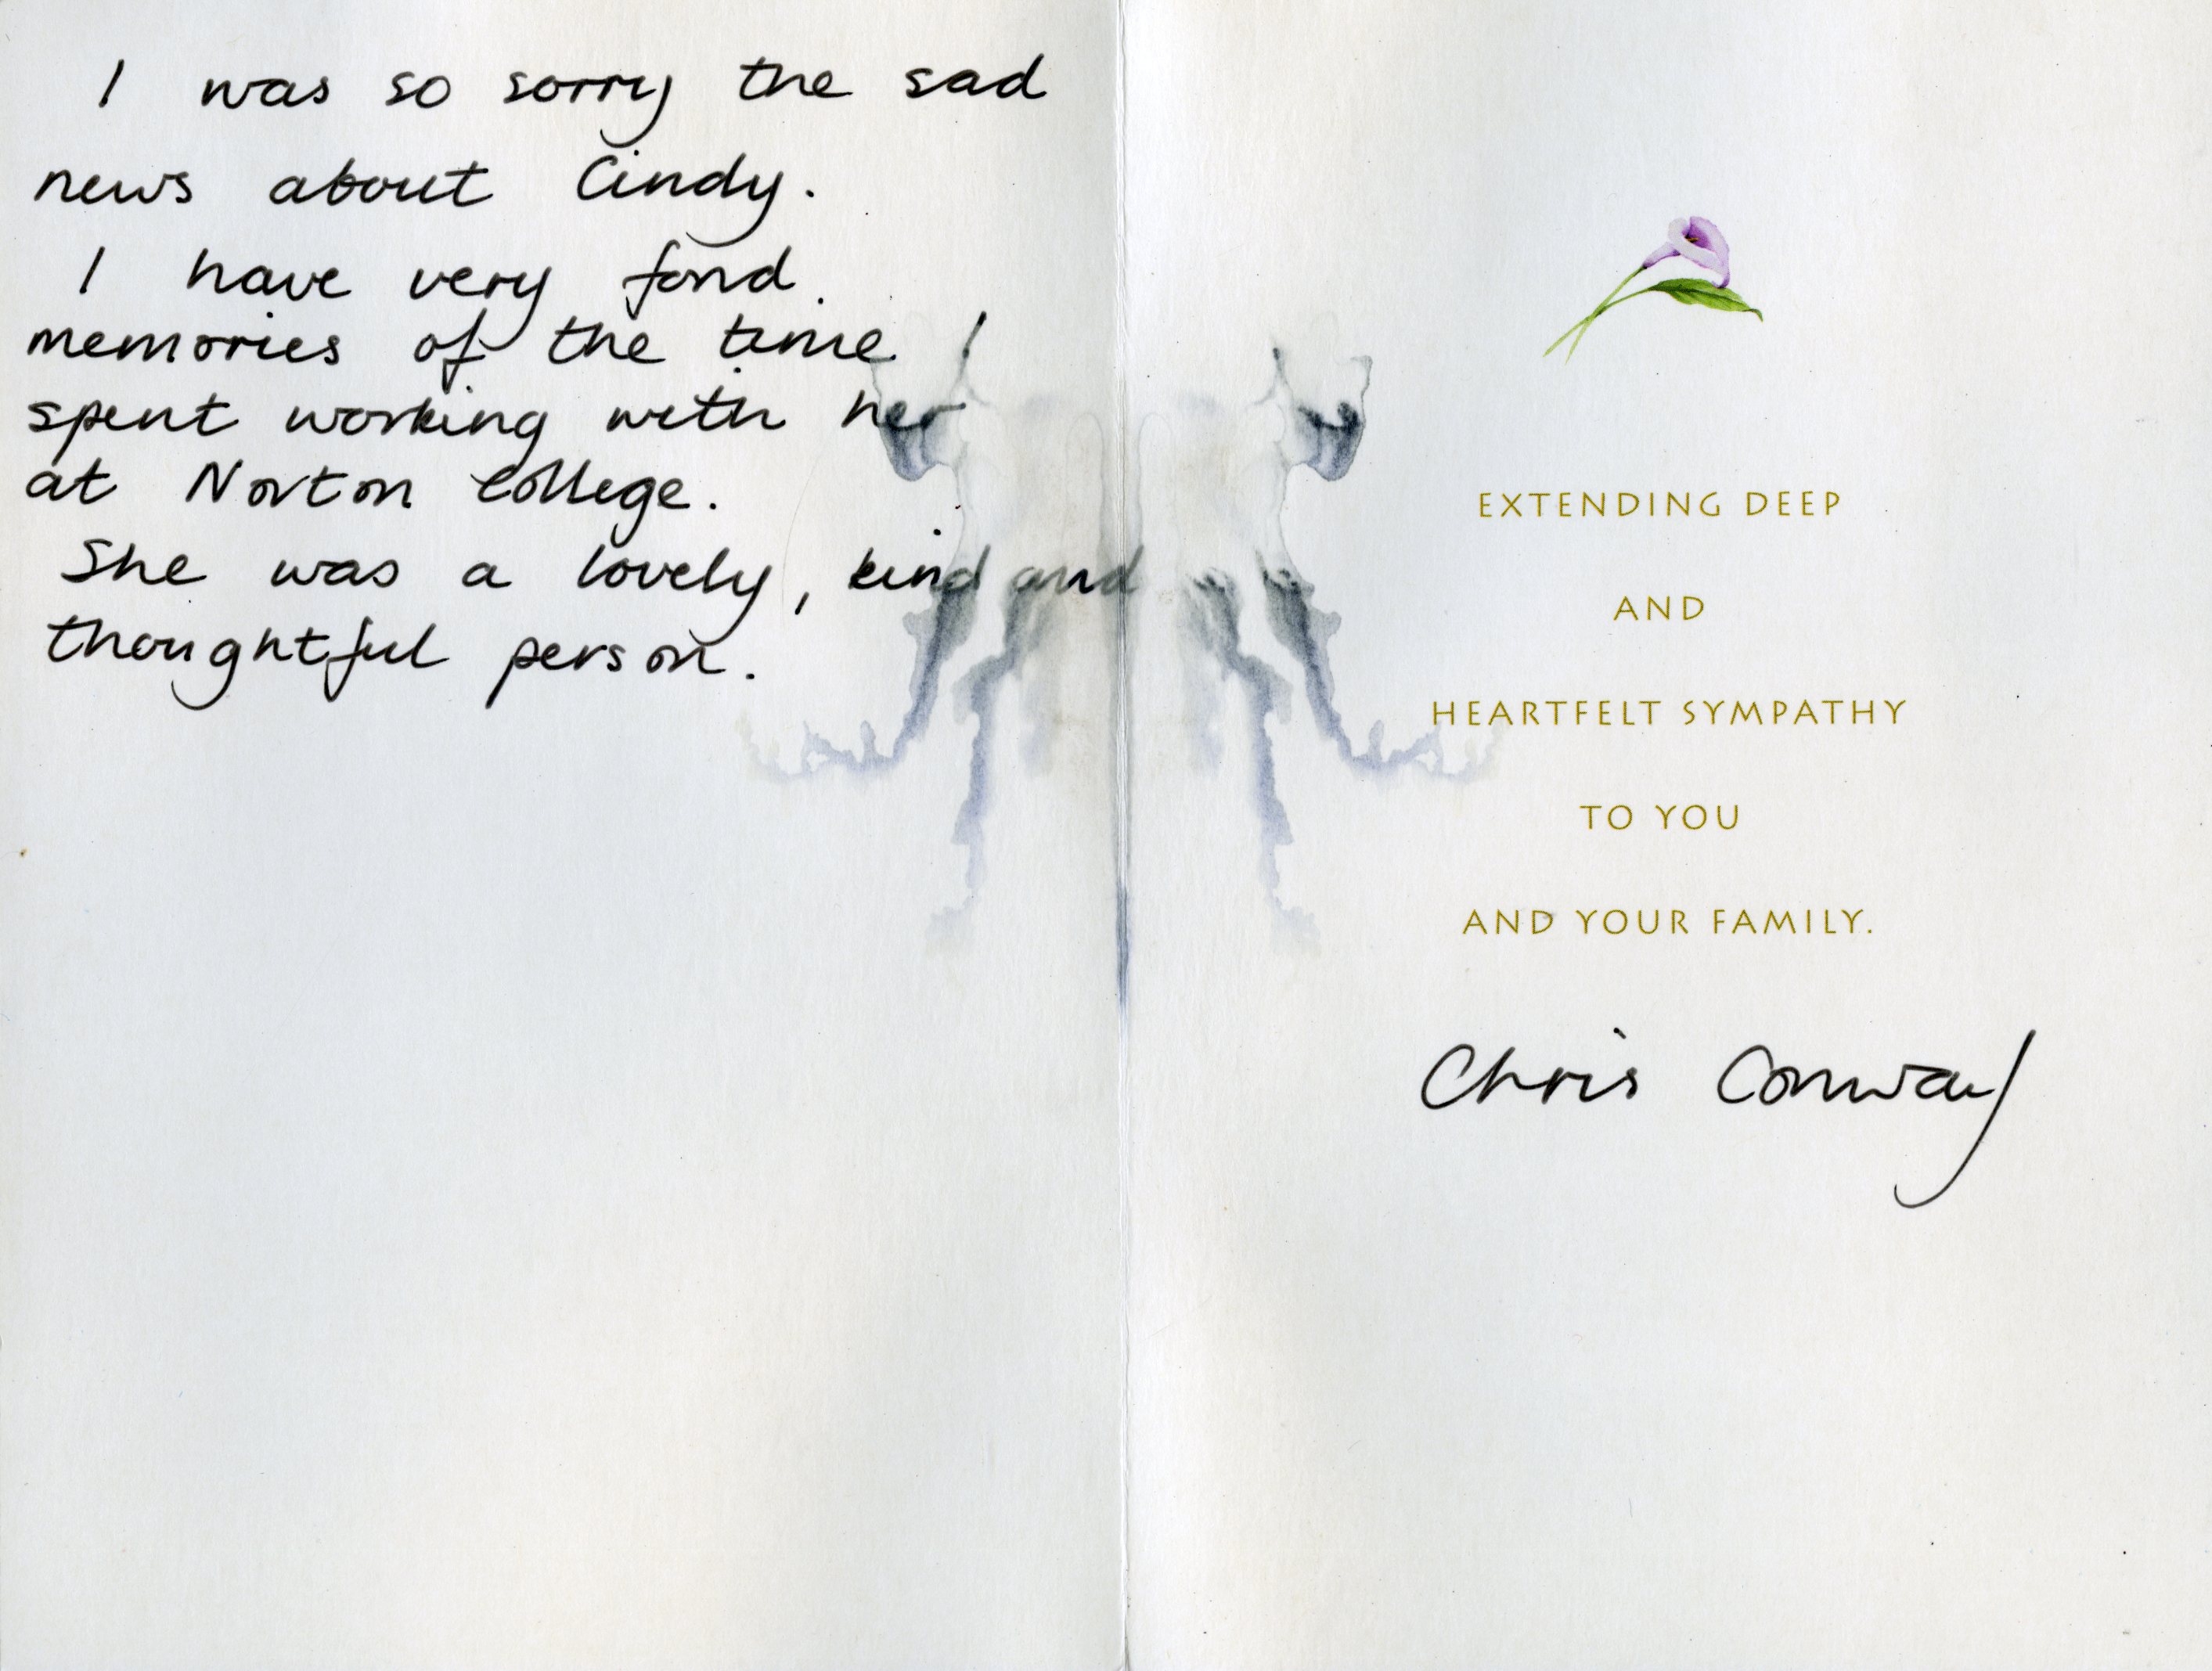 I was so sorry the sad
news about Cindy.
I have very fond
memories of the time I
spent working with her
at Norton College.
She was a lovely, kind and
thoughtful person.
EXTENDING DEEP
AND
HEARTFELT SYMPATHY
TO YOU
AND YOUR FAMILY.
Chris Conway